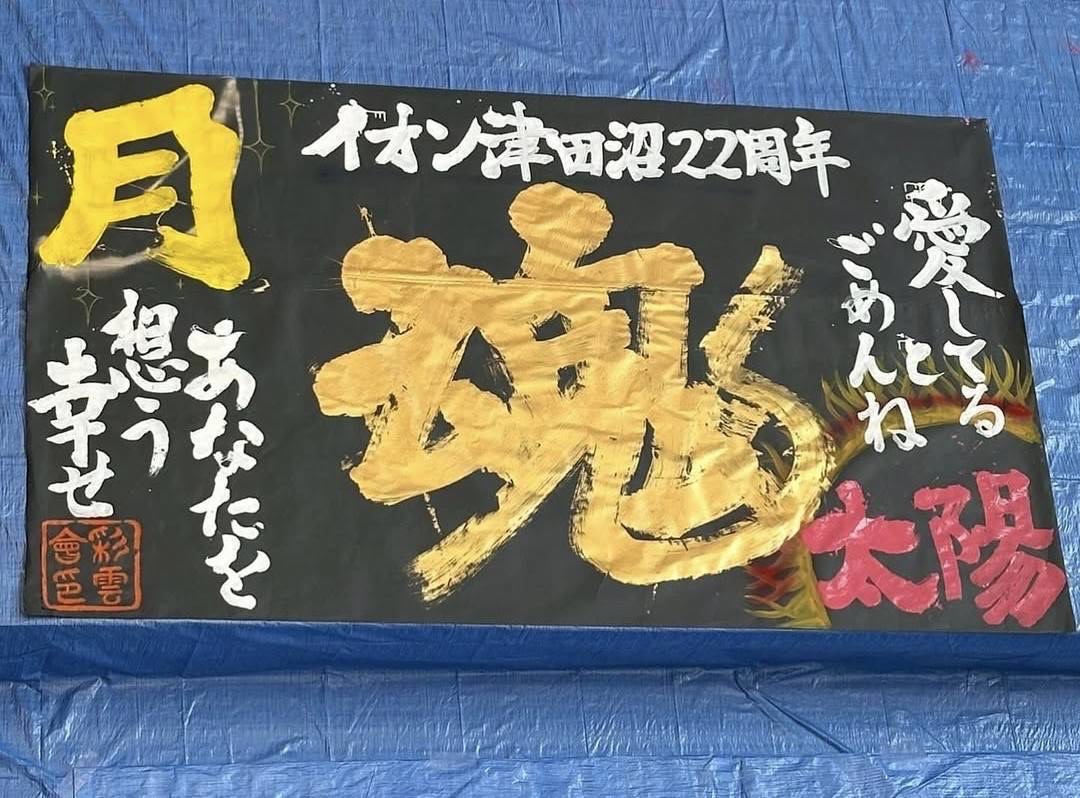 イオン津田沼22周年
愛してる
と
ごめんね
太陽
魂
月
あなたを
想う
幸せ
彩雲
會印